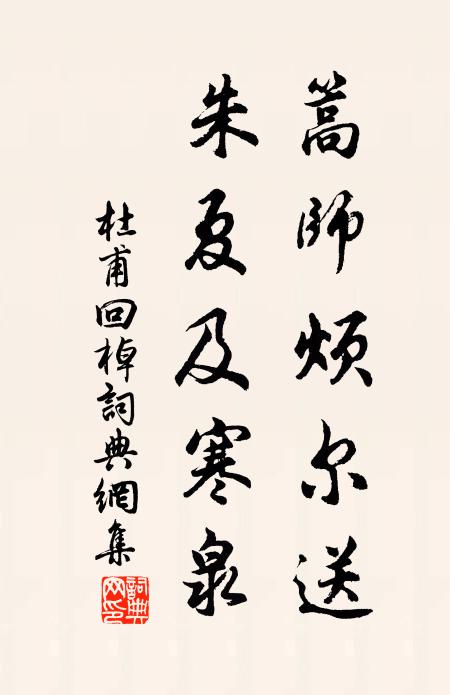 篙師煩尔送
朱夏及寒泉
杜甫回棹詞典網集
詞典网印